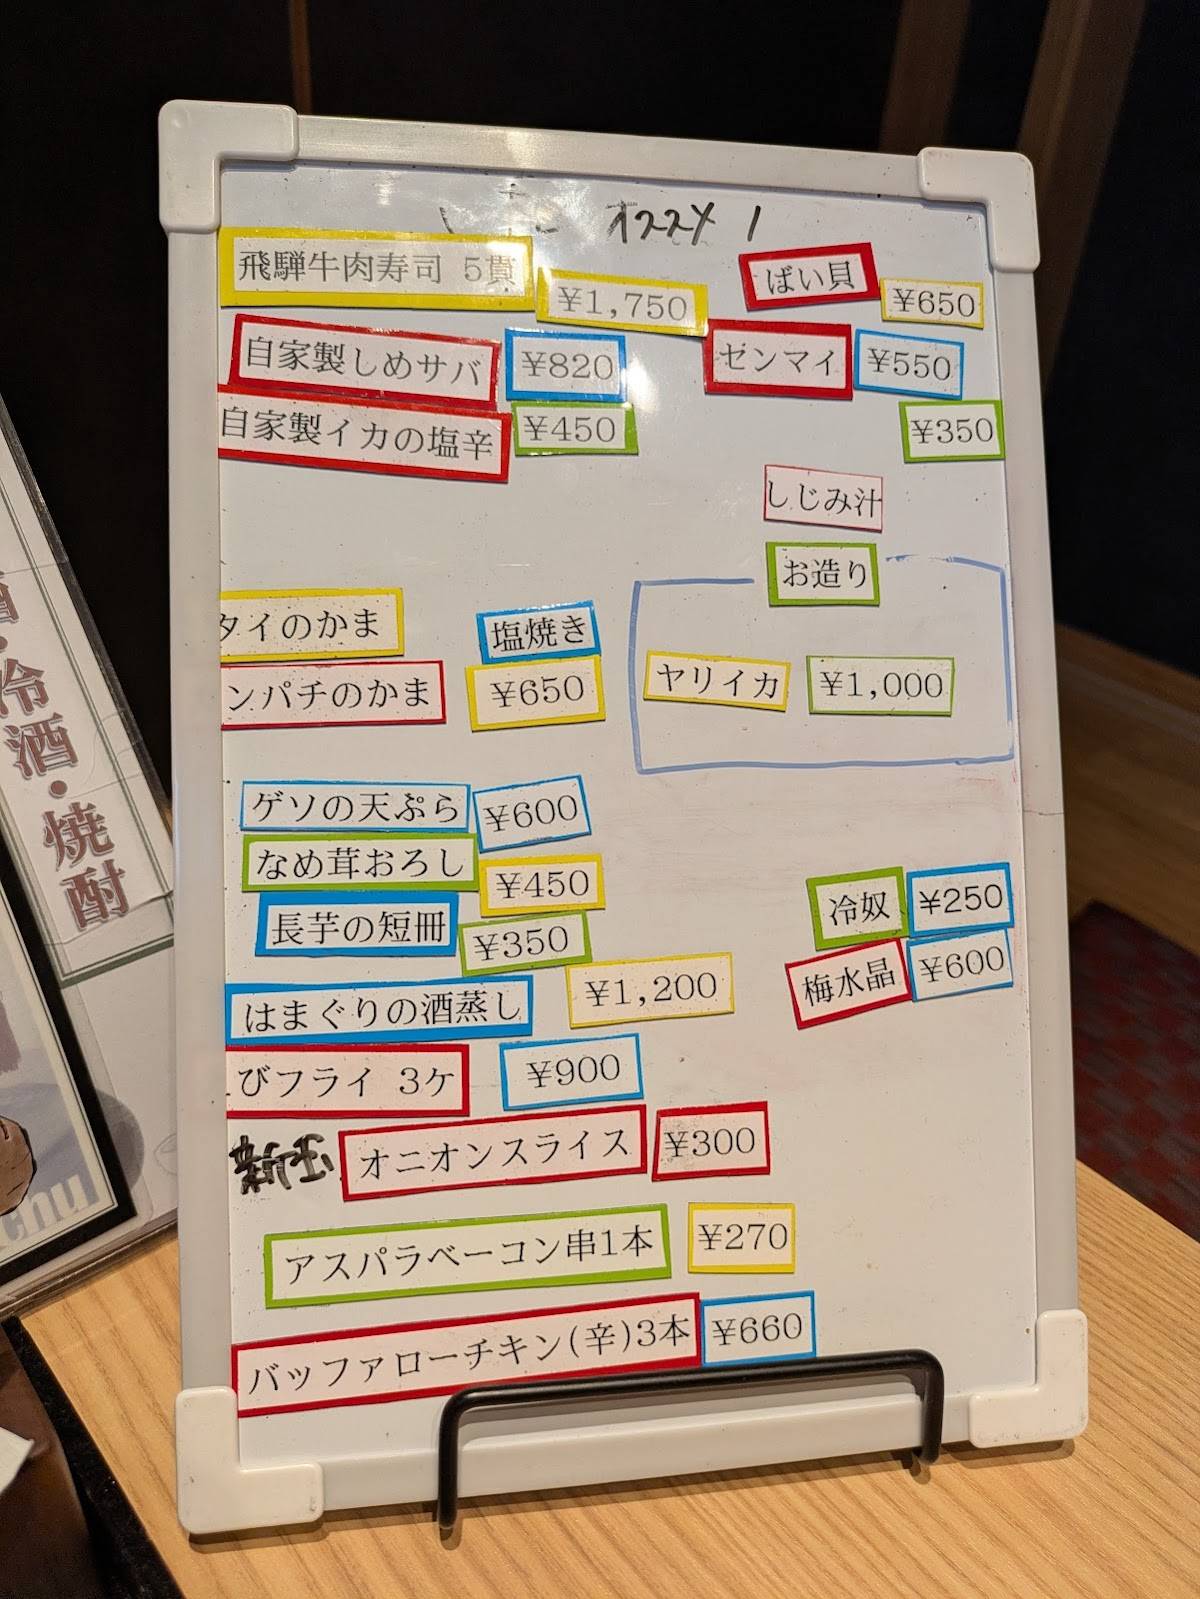 オススメ
飛騨牛肉寿司 5貫 ¥1,750
自家製しめサバ ¥820
自家製イカの塩辛 ¥450
ばい貝 ¥650
ゼンマイ ¥550
¥350
しじみ汁
お造り
ヤリイカ ¥1,000
タイのかま 塩焼き
ンパチのかま ¥650
ゲソの天ぷら ¥600
なめ茸おろし ¥450
長芋の短冊 ¥350
はまぐりの酒蒸し ¥1,200
びフライ 3ケ ¥900
新玉 オニオンスライス ¥300
アスパラベーコン串1本 ¥270
バッファローチキン(辛)3本 ¥660
冷奴 ¥250
梅水晶 ¥600
酒・冷酒・焼酎
enu